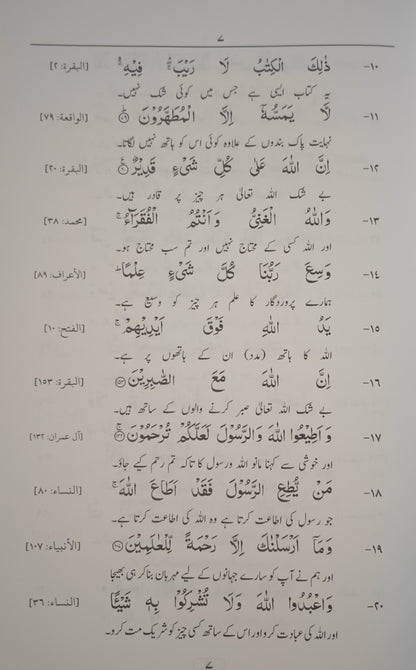 ۷
۱۰- ذٰلِكَ الْكِتٰبُ لَا رَيْبَ ۛ فِيْهِ ۛ [البقرة: ۲]
یہ کتاب ایسی ہے جس میں کوئی شک نہیں۔
۱۱- لَّا يَمَسُّهٗٓ اِلَّا الْمُطَهَّرُوْنَ ؕ۝۷۹ [الواقعة: ۷۹]
نہایت پاک بندوں کے علاوہ کوئی اس کو ہاتھ نہیں لگاتا۔
۱۲- اِنَّ اللّٰهَ عَلٰى كُلِّ شَیْءٍ قَدِيْرٌ۝۲۰ [البقرة: ۲۰]
بے شک اللہ تعالیٰ ہر چیز پر قادر ہیں۔
۱۳- وَاللّٰهُ الْغَنِیُّ وَاَنْتُمُ الْفُقَرَآءُ ۚ [محمد: ۳۸]
اور اللہ کسی کے محتاج نہیں اور تم سب محتاج ہو۔
۱۴- وَسِعَ رَبُّنَا كُلَّ شَیْءٍ عِلْمًا ؕ [الأعراف: ۸۹]
ہمارے پروردگار کا علم ہر چیز کو وسیع ہے۔
۱۵- يَدُ اللّٰهِ فَوْقَ اَيْدِيْهِمْ ۚ [الفتح: ۱۰]
اللہ کا ہاتھ (مدد) ان کے ہاتھوں پر ہے۔
۱۶- اِنَّ اللّٰهَ مَعَ الصّٰبِرِيْنَ۝۱۵۳ [البقرة: ۱۵۳]
بے شک اللہ تعالیٰ صبر کرنے والوں کے ساتھ ہیں۔
۱۷- وَاَطِيْعُوا اللّٰهَ وَالرَّسُوْلَ لَعَلَّكُمْ تُرْحَمُوْنَ ۚ۝۱۳۲ [آل عمران: ۱۳۲]
اور خوشی سے کہنا مانو اللہ ورسول کا تاکہ تم رحم کیے جاؤ۔
۱۸- مَنْ يُّطِعِ الرَّسُوْلَ فَقَدْ اَطَاعَ اللّٰهَ ۚ [النساء: ۸۰]
جو رسول کی اطاعت کرتا ہے وہ اللہ کی اطاعت کرتا ہے۔
۱۹- وَمَآ اَرْسَلْنٰكَ اِلَّا رَحْمَةً لِّلْعٰلَمِيْنَ۝۱۰۷ [الأنبياء: ۱۰۷]
اور ہم نے آپ کو سارے جہانوں کے لیے مہربان بنا کر ہی بھیجا
۲۰- وَاعْبُدُوا اللّٰهَ وَلَا تُشْرِكُوْا بِهٖ شَيْئًا [النساء: ۳۶]
اور اللہ کی عبادت کرو اور اس کے ساتھ کسی چیز کو شریک مت کرو۔
۷